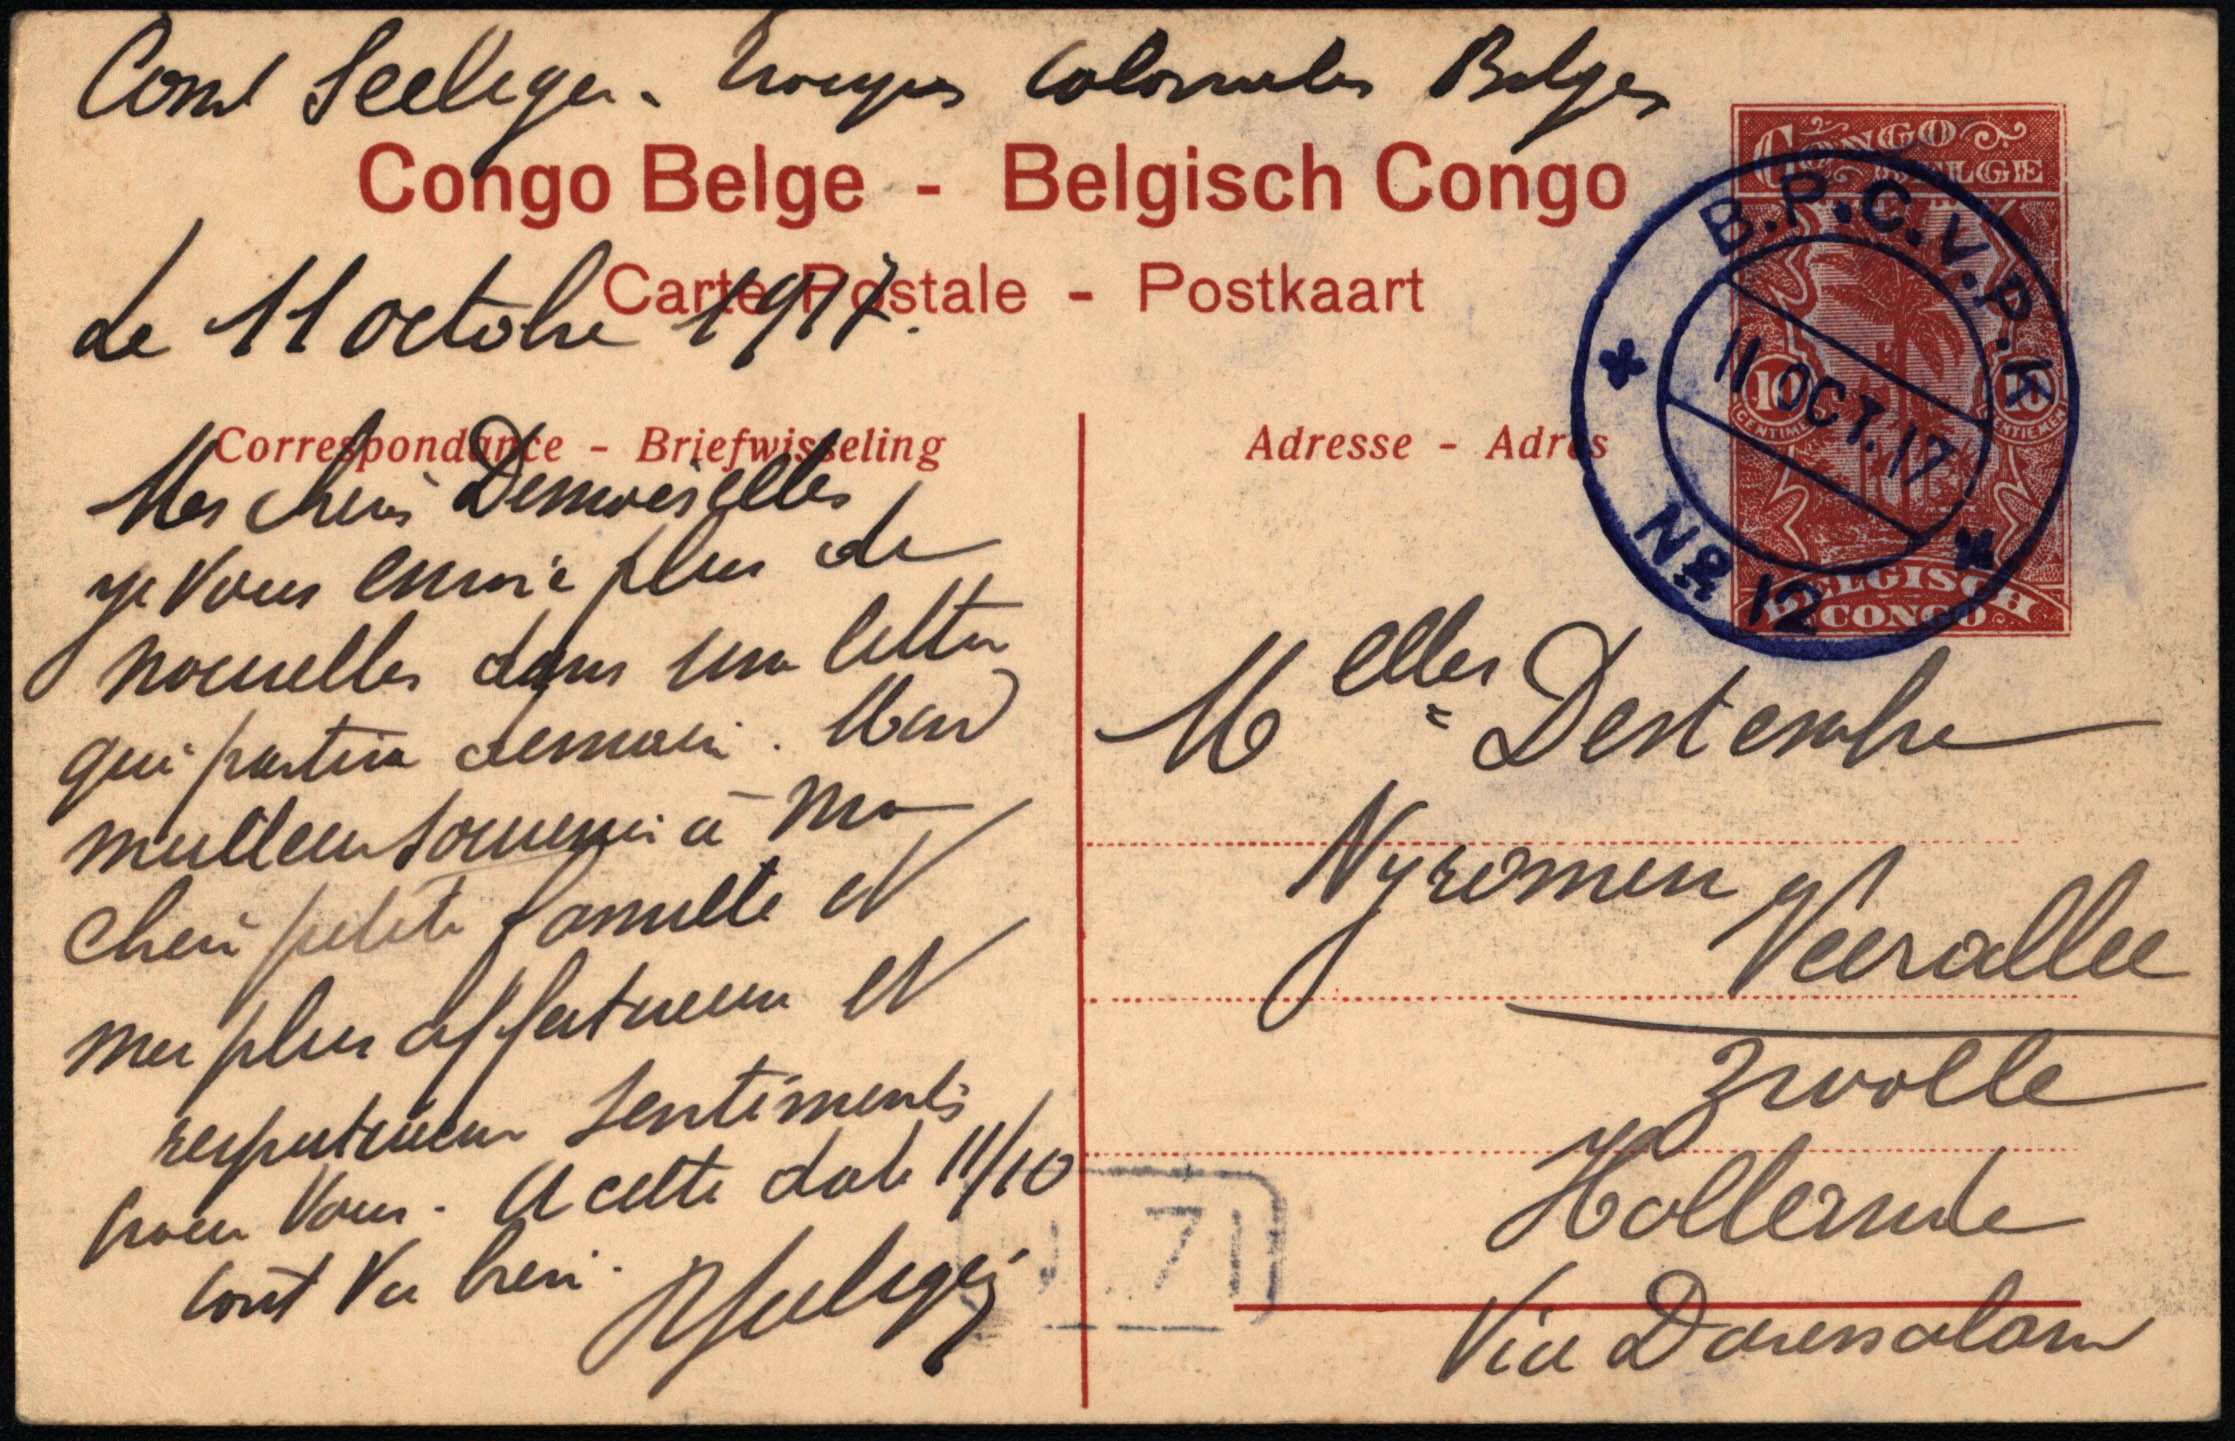 Comt Seeliger. Troupes coloniales Belges
CONGO BELGE
Congo Belge - Belgisch Congo
B.P.C.V.P.K
Carte Postale - Postkaart
le 11 octobre 1917.
11 OCT. 17
10 CENTIMES
10 CENTIEMEN
Correspondance - Briefwisseling
Adresse - Adres
No 12
BELGISCH CONGO
Mes chères Demoiselles
je vous envoie plus de
nouvelles dans une lettre
qui partira demain. Mon
meilleur souvenir à ma
chère petite famille et
mes plus affectueux et
respectueux sentiments
pour vous. A cette date 11/10
tout va bien.
Melles Destembre
Veerallee
Zwolle
Hollande
Via Daressalam